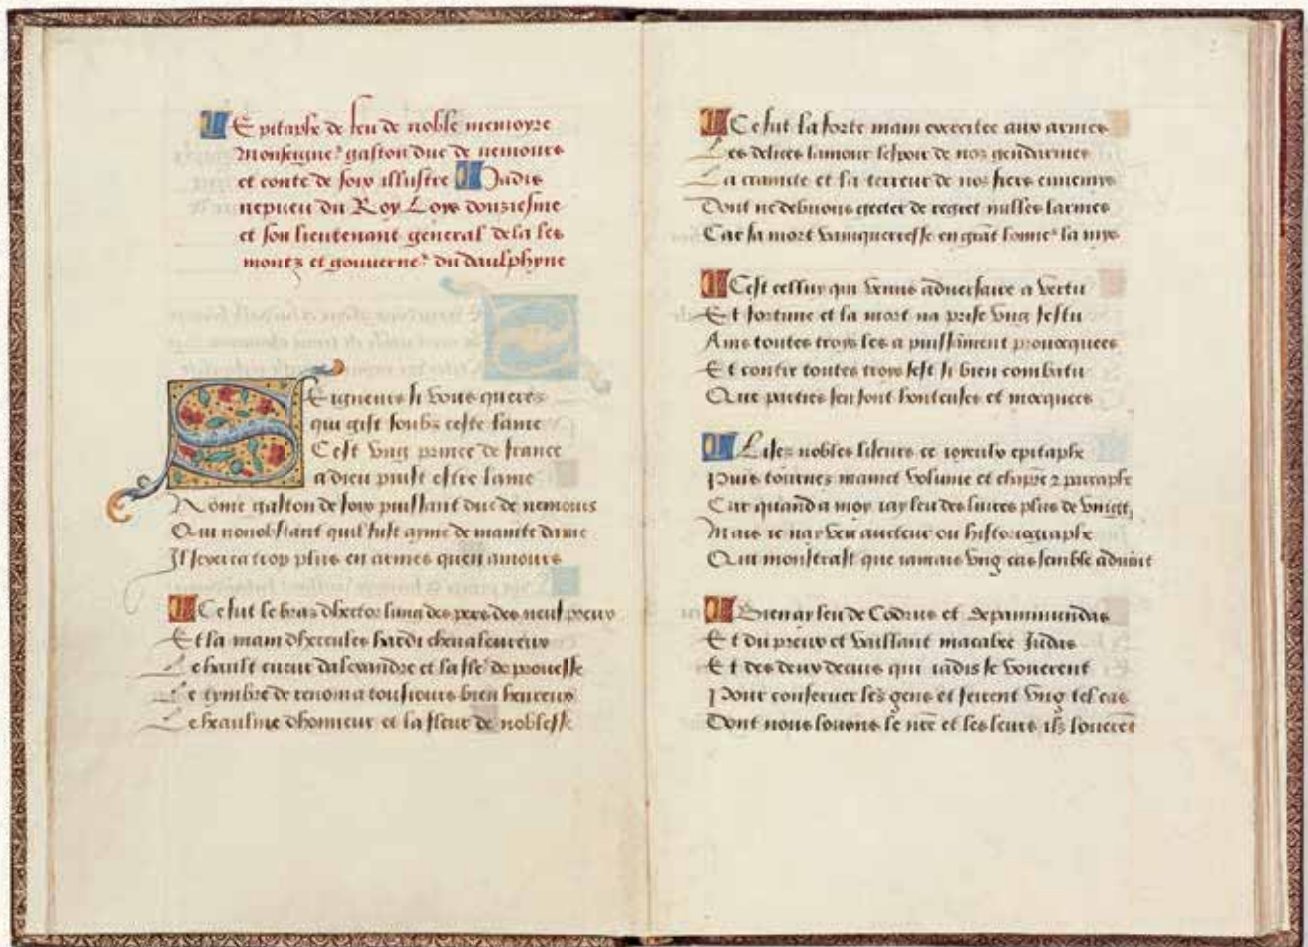 LEpitaphe de feu de noble memoyre
Monseigner gaston duc de nemours
et conte de foix illustre Jadis
nepueu du Roy Loys douziesme
et son lieutenant general dela les
montz et gouverner du daulphyne
SEigneurs si vous querez
qui gist soubz ceste lame
Cest vng prince de france
a dieu puist estre lame
Nome gaston de foix puissant duc de nemours
Qui nonobstant quil fust ayme de mainte dame
Il trop plus en armes quen amours
Ce fut le bras dhector lung des pers des neuf preux
Et la main dhercules hardi cheualeureux
Le hault cueur dalexandre et la de prouesse
Le tymbre de renom a tousiours bien heureux
Le heaulme dhonneur et la fleur de noblesse
Ce fut la forte main exercitee aux armes
Les delices lamour lespoir de noz gendarmes
La craincte et la terreur de nos fiers ennemys
Dont ne debuons gecter de regret milles larmes
Car sa mort vainquerresse en grāt la mys
Cest celluy qui venus aduersaire a vertu
Et fortune et la mort na prise vng festu
Ains toutes troys les a puissāment prouocquees
Et contre toutes troys sest si bien combatu
Que parties sen sont honteuses et mocquees
Lisez nobles liseurs ce epitaphe
Puis tournez mainct volume et chapitre 2 paraphe
Car quand a moy iay leu des liures plus de vingt
Mais ie nay veu aucteur ou historiagraphe
Qui monstrast que iamais vng cas semble aduint
Bien ay leu de Codrus et depaminundas
Et du preux et vaillant macabee Judas
Et des deux decius qui iadis se vouerent
Pour conseruer les gens et feirent vng tel cas
Dont nous louons le nr̄e et les leurs ilz louerēt